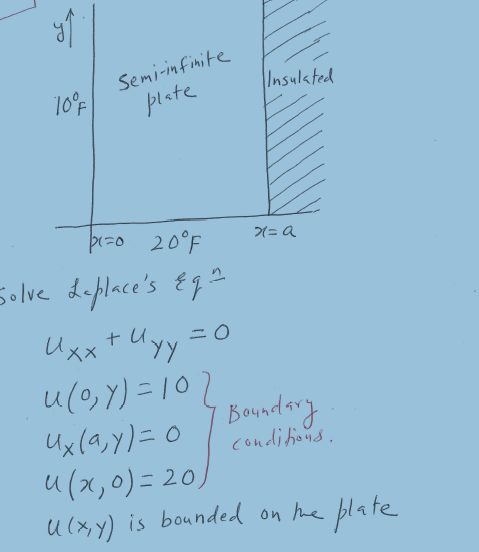 y
Semi-infinite
plate
Insulated
10°F
x=0 20°F x=a
Solve Laplace's Eqⁿ
u_xx + u_yy = 0
u(0,y) = 10
u_x(a,y) = 0
u(x,0) = 20
Boundary
conditions.
u(x,y) is bounded on the plate